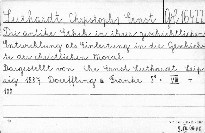 Luthardt, Christoph Ernst
Die antike Ethik in ihrer geschichtlichen
Entwicklung als Einleitung in die Geschichte
der christlichen Moral.
Dargestellt von Chr. Ernst Luthardt. Leip-
zig 1887 Doerffling & Franke 8° VIII